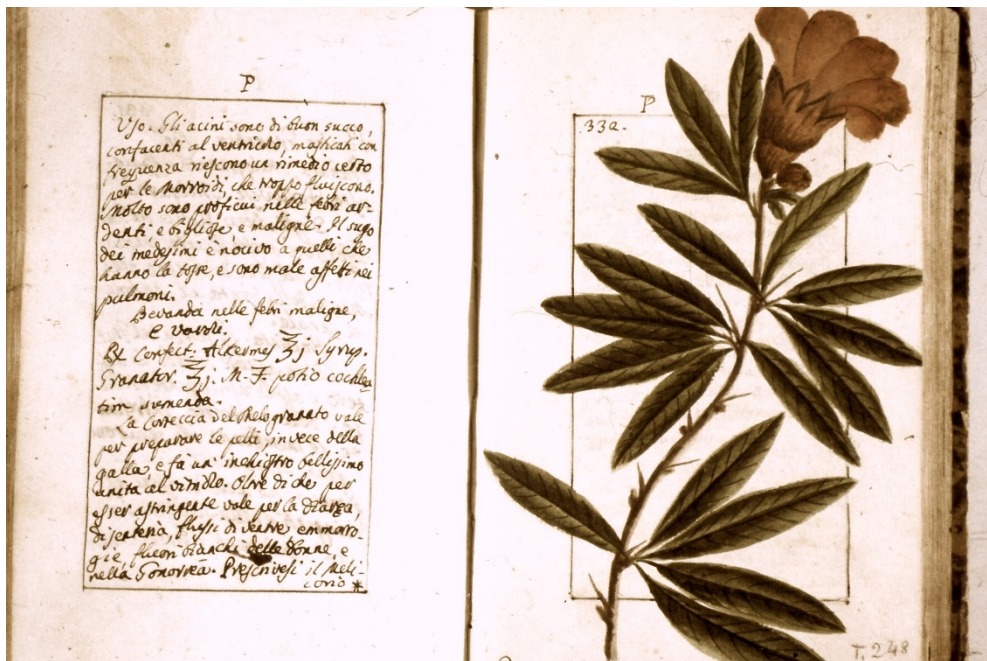 P
Uso. Gli acini sono di buon succo,
confacenti al ventricolo, masticati con
frequenza riescono un rimedio certo
per le Morroidi, che troppo fluiscono.
Molto sono proficui nelle febri ar-
denti, e bigliose, e maligne. Il sugo
dei medesimi è nocivo a quelli che
hanno la tosse, e sono male affetti nei
pulmoni.
Bevanda nelle febri maligne,
e varoli.
Confect: Alkermes ʒj Syrup.
Granator. ʒj. M. F. potio cochlea
tim sumenda.
La Correccia del Melogranato vale
per preparare le pelli, invece della
galla, e fà un' inchiostro bellissimo
unita al vitriolo. Oltre di che per
esser astringente vale per la diarea,
disenteria, flussi di ventre emmoro-
gie fluori bianchi delle donne, e
nella Gonorrea. Prescrivesi il Mali-
corio *
P
332.
T. 248